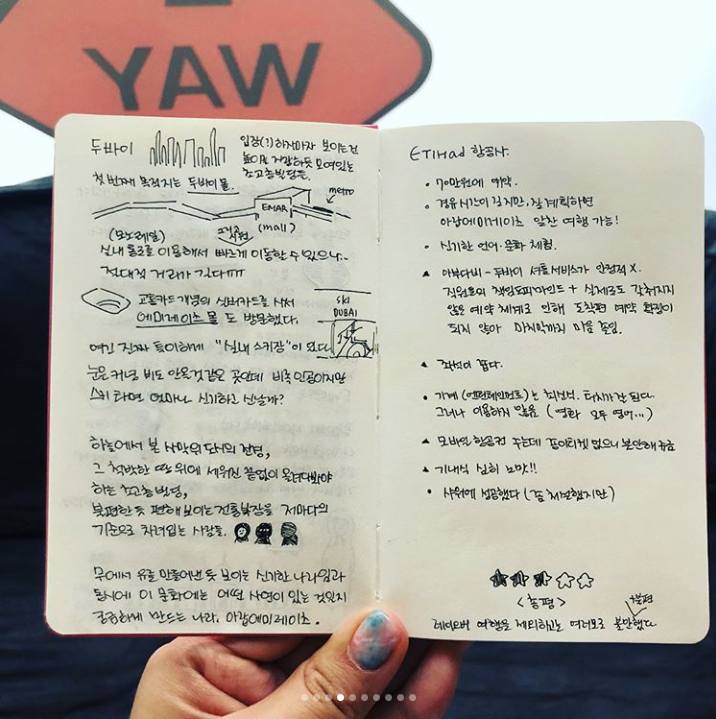 YAW
두바이
입장(?)하자마자 보이는건
높이를 자랑하듯 모여있는
초고층빌딩들.
첫번째 목적지는 두바이몰.
metro
EMAR
(mall)
(모노레일)
실내 통로를 이용해서 빠르게 이동할 수 있으나..
절대적 거리가 길다ㅠㅠ
교통카드 개념의 실버카드를 사서
에미레이츠 몰 도 방문했다.
SKI
DUBAI
여긴 진짜 특이하게 "실내 스키장"이 있다
눈은커녕 비도 안올것같은 곳인데 비록 인공이지만
스키 타면 얼마나 신기하고 신날까?
하늘에서 본 사막위 도시의 전경,
그 척박한 땅 위에 세워진 끝없이 올려다봐야
하는 초고층빌딩,
불편한듯 편해보이는 전통복장을 저마다의
기준으로 차려입는 사람들.
무에서 유를 만들어낸 듯 보이는 신기한 나라임과
동시에 이 문화에는 어떤 사연이 있는 것인지
궁금하게 만드는 나라. 아랍에미레이츠.
ETIHad 항공사.
• 70만원에 예약.
• 경유시간이 길지만, 잘 계획하면
아랍에미레이츠 알찬 여행 가능!
• 신기한 언어·문화 체험.
▲ 아부다비-두바이 셔틀서비스가 안정적 X.
직원들의 책임회피마인드 + 실제로도 갖춰지지
않은 예약 체계로 인해 도착편 예약 확정이
되지 않아 마지막까지 마음 졸임.
▲ 좌석이 좁다.
• 기계 (엔터테인먼트)는 최신식. 터치가 잘 된다.
그러나 이용하지 않음 (영화 모두 영어...)
▲ 모바일 항공권 주는데 종이티켓 없으니 불안해
▲ 기내식 심히 노맛!!
• 샤워에 성공했다 (좀 처절했지만)
<총평>
+불편
레이오버 여행을 제외하고는 여러모로 불만했다